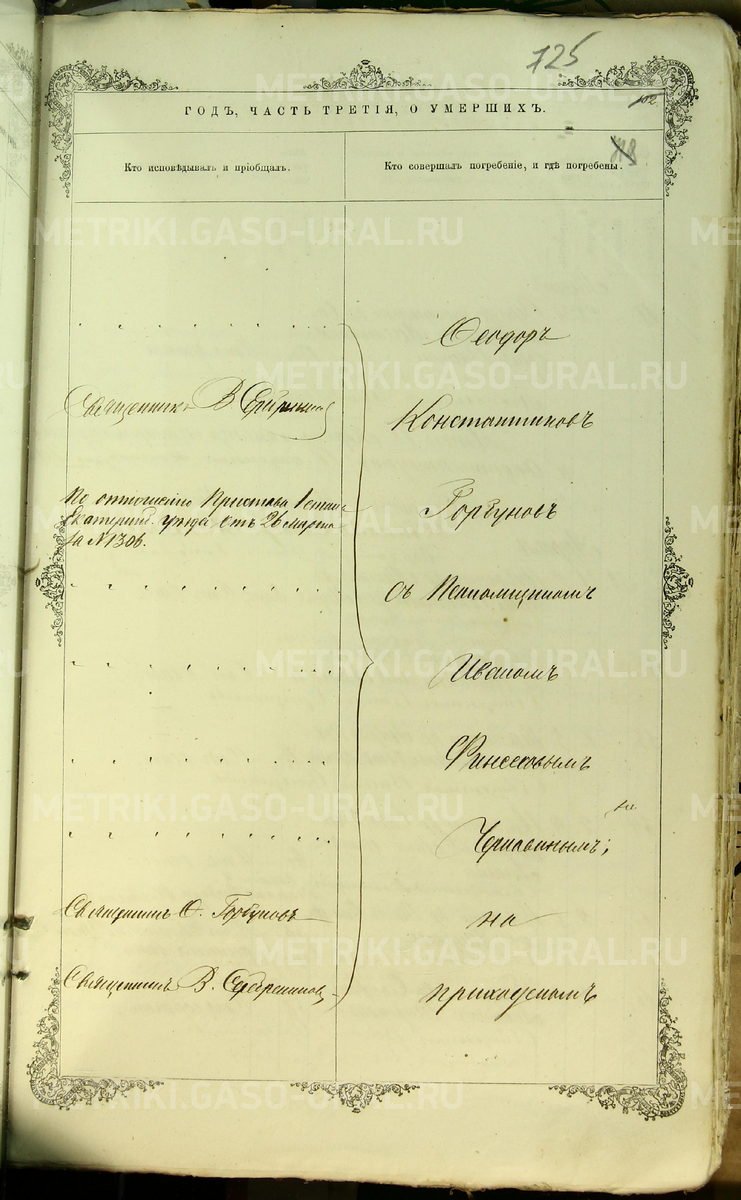 725
102
ГОДЪ, ЧАСТЬ ТРЕТІЯ, О УМЕРШИХЪ.
Кто исповѣдывалъ и пріобщалъ.
Кто совершалъ погребеніе, и гдѣ погребены.
Священникъ В
По отношенію Пристава 1 стана
Екатерин. уѣзда отъ 26 Марта
за № 1306.
Священникъ Ѳ. Горбуновъ
Священникъ В. Серебренниковъ
Ѳеодоръ
Константиновъ
Горбуновъ
съ Псаломщикомъ
Иваномъ
Чернавинымъ;
на
приходскомъ
METRIKI.GASO-URAL.RU